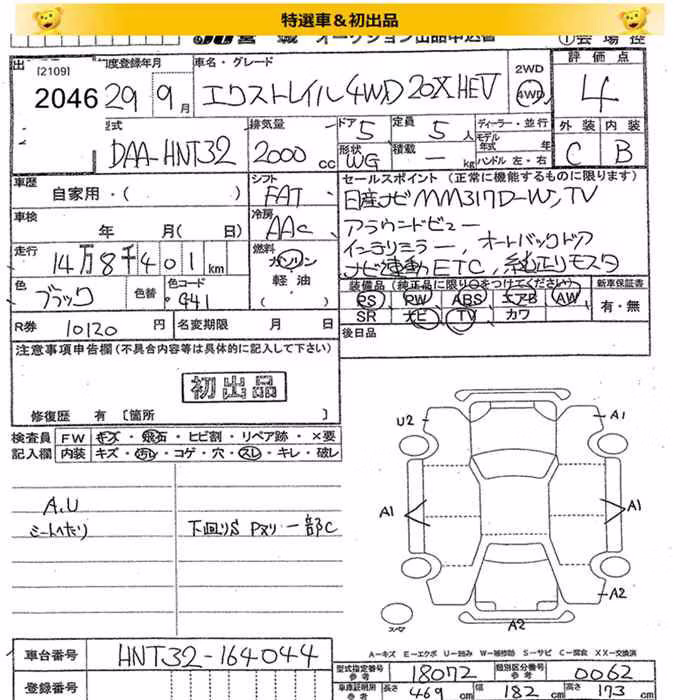 特選車&初出品
宮城 オークション出品申込書 ①会場控
出 [2109] 2046
初度登録年月 29年 9月
車名・グレード エクストレイル 4WD 20X HEV
2WD 4WD
評価点 4
型式 DAA-HNT32
排気量 2000 cc
ドア 5 定員 5人
形状 WG 積載 - kg
ディーラー・並行
モデル年式 年式
ハンドル 左・右
外装 内装
C B
車歴 自家用・( )
シフト FAT
車検 年 月( 日)
冷房 AAC
走行 14万8千401km
燃料 ガソリン・軽油
色 ブラック 色替 色コード G41
セールスポイント (正常に機能するものに限ります)
日産ナビ MM317D-W, TV
アラウンドビュー
インテリミラー, オートバックドア
ナビ連動ETC, 純正リモスタ
装備品 (純正品に限り○をつけてください) 新車保証書
PS PW ABS エアB AW 有・無
SR ナビ TV カワ
R券 10120 円 名変期限 月 日
後日品
注意事項申告欄 (不具合内容等は具体的に記入して下さい)
初出品
修復歴 有 [箇所 ]
検査員 FW キズ・飛石・ヒビ割・リペア跡・×要
記入欄 内装 キズ・汚レ・コゲ・穴・スレ・キレ・破レ
A.U
シートへたり 下回りS Pヌリ 一部C
U2 A1
A1 A1
A2
スペア A2
車台番号 HNT32-164044
登録番号
A=キズ E=エクボ U=凹み W=補修跡 S=サビ C=腐食 XX=交換済
型式指定番号 参考 18072 類別区分番号 参考 0062
車庫証明用 参考 長さ 469 cm 幅 182 cm 高さ 173 cm